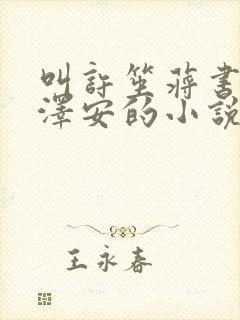 叫許笙蔣書
澤安的小說
王永春